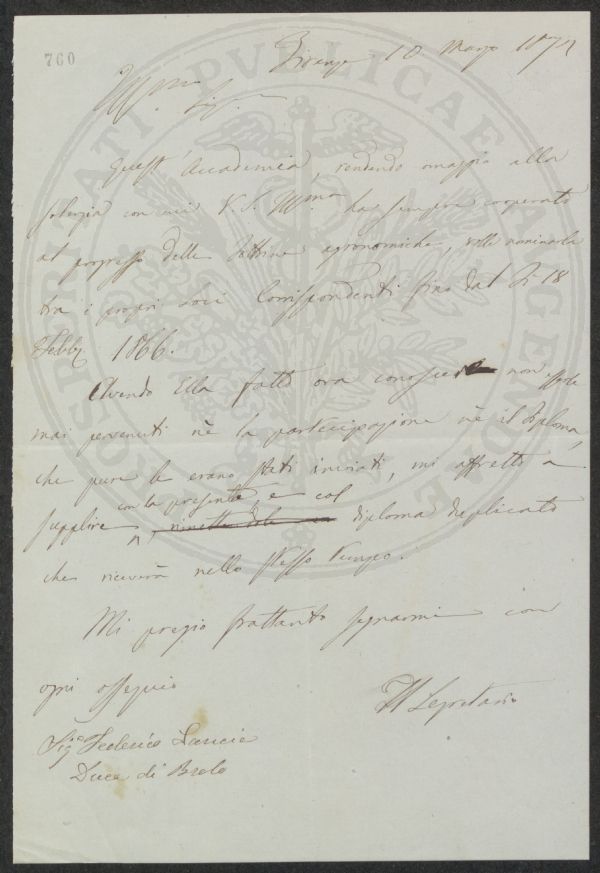 760
Firenze 10 Marzo 1872
Ill.mo Sig.
Quest' Accademia, rendendo omaggio alla
solerzia con cui V. S. Ill.ma ha sempre cooperato
al progresso delle dottrine agronomiche, volle nominarla
tra i propri Soci Corrispondenti fino dal dì 18
Febb. 1866.
Avendo Ella fatto ora conoscere non esserle
mai pervenuti nè la partecipazione nè il diploma,
che pure le erano stati inviati, mi affretto a
supplire con la presente, e col diploma duplicato
che riceverà nello stesso tempo.
Mi pregio frattanto segnarmi con
ogni ossequio
Il Segretario
Sig. Federico Lancia
Duca di Brolo
GEORGOFILI PUBLICAE AUGENDAE PROSPERITATI